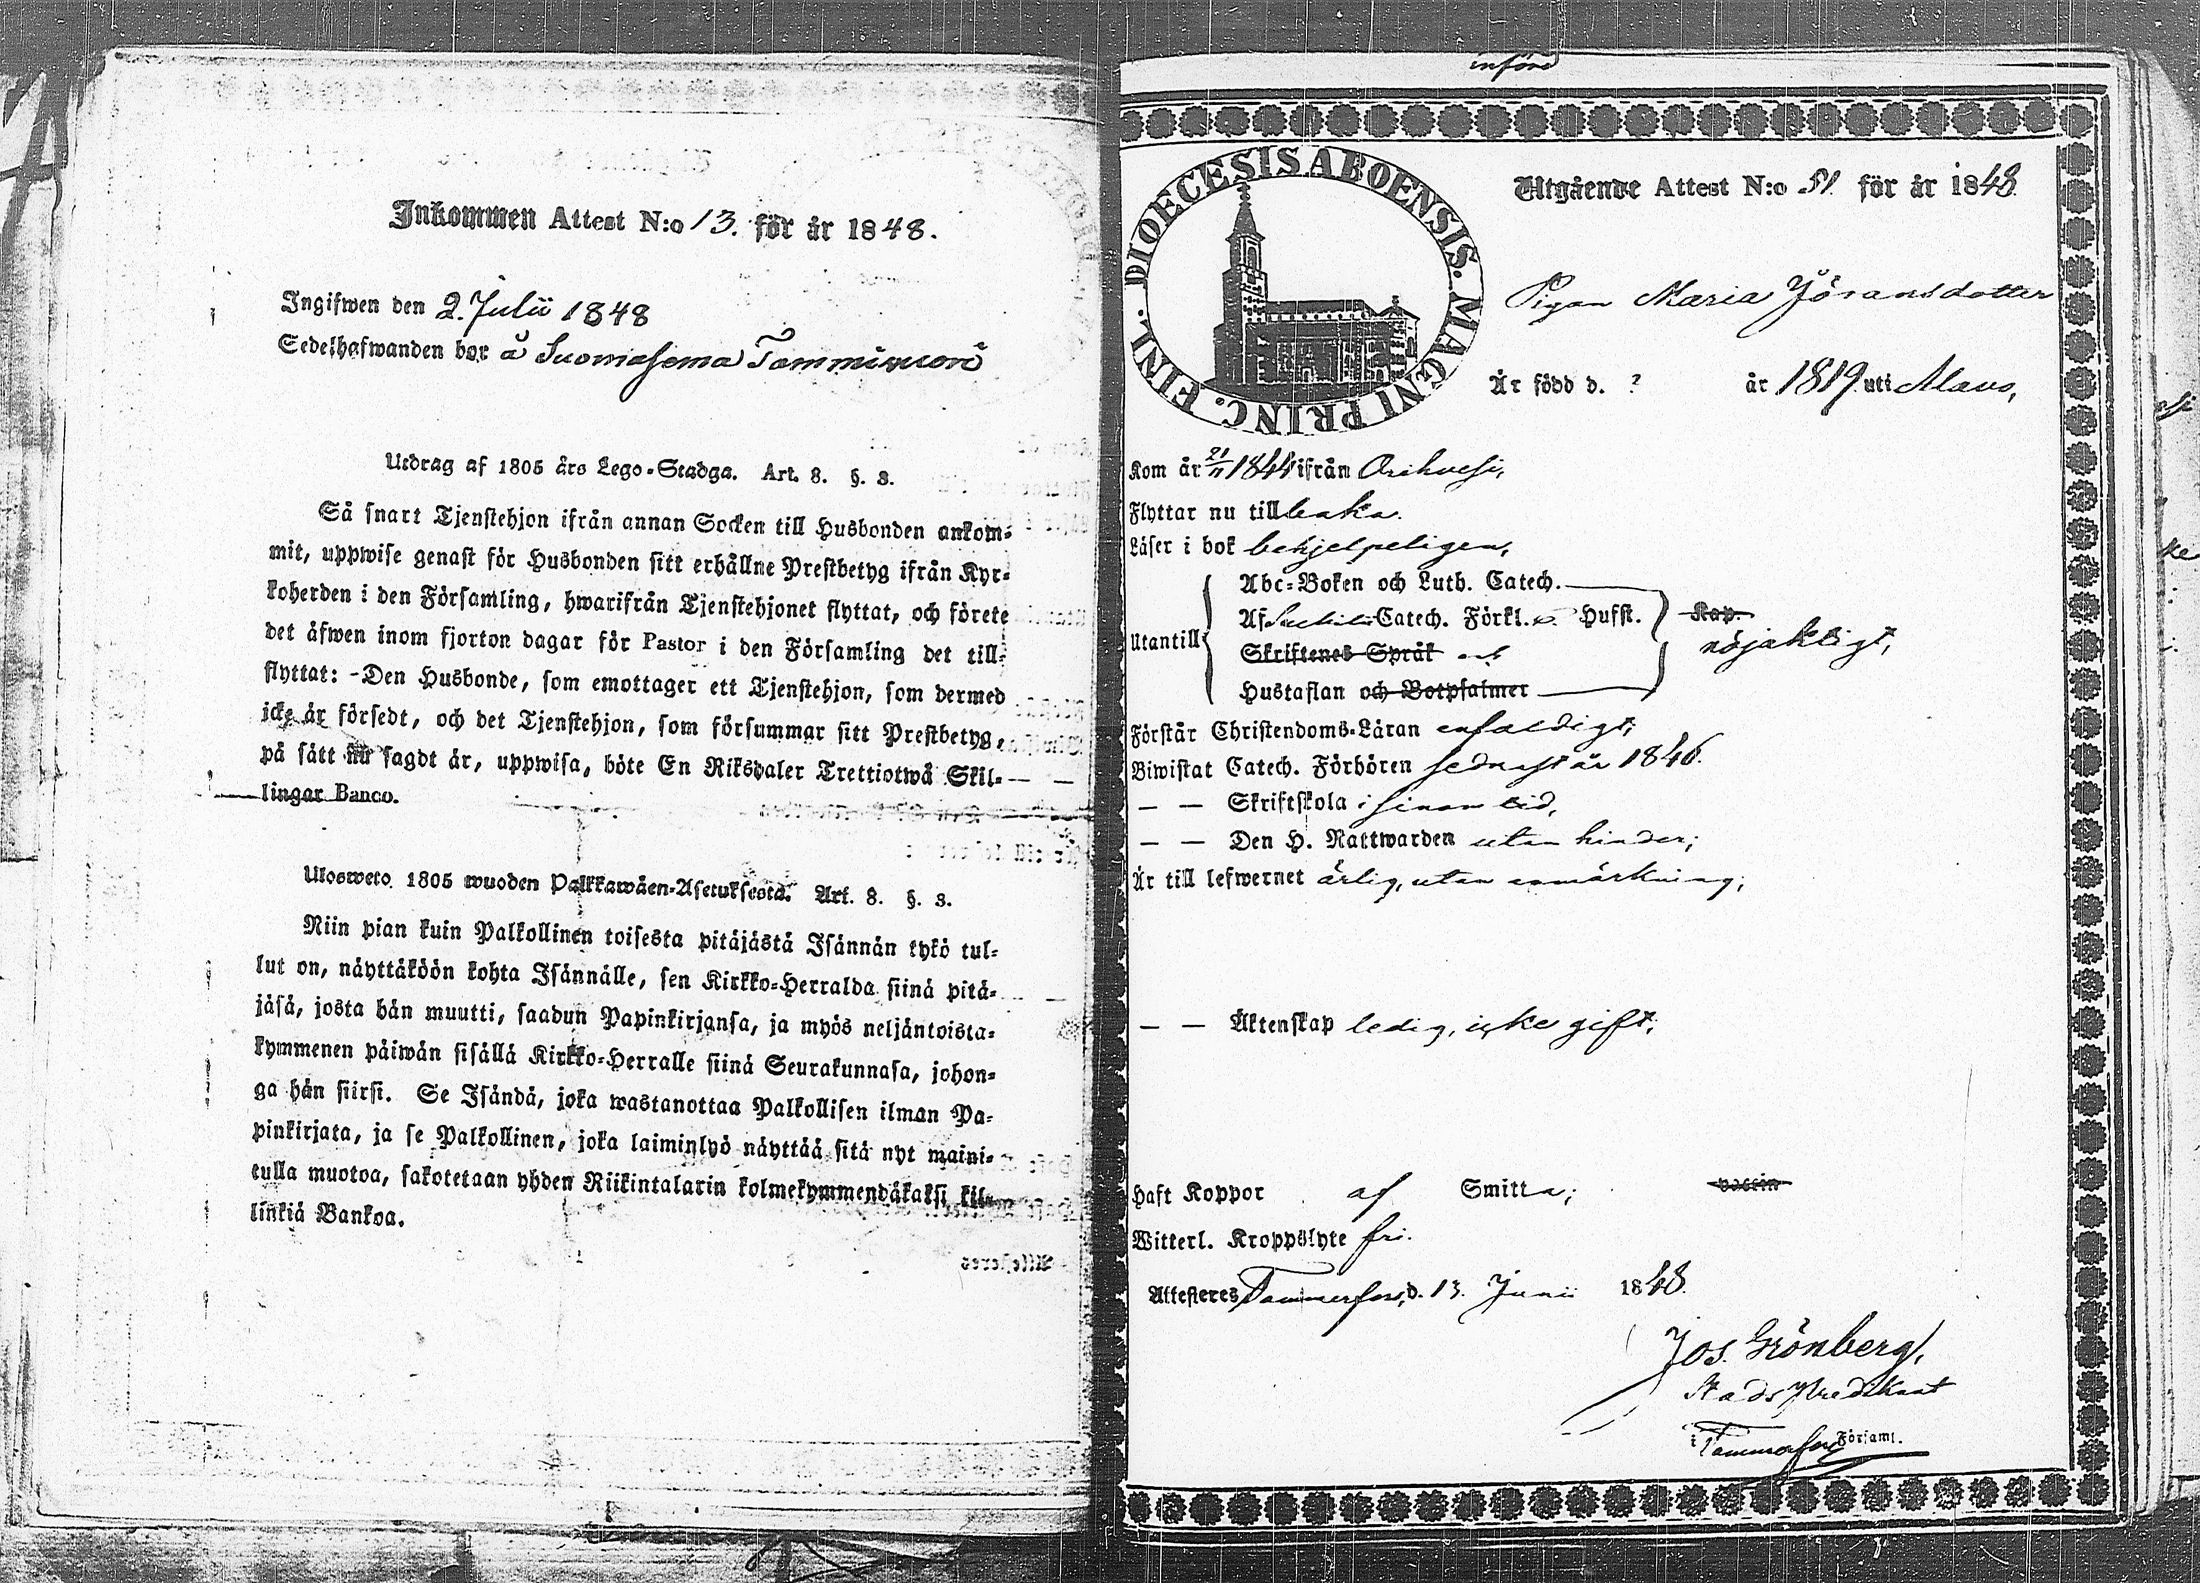 Inkommen Attest N:o 13. för år 1848.
Ingifwen den 2. Julii 1848
Sedelhafwanden bor å Suomasema Tammikorvi
Utdrag af 1805 års Lego-Stadga. Art. 8. §. 3.
Så snart Tjenstehjon ifrån annan Socken till Husbonden ankom-
mit, uppwise genast för Husbonden sitt erhållne Prestbetyg ifrån Kyr-
koherden i den Församling, hwarifrån Tjenstehjonet flyttat, och förete
det äfwen inom fjorton dagar för Pastor i den Församling det till-
flyttat: - Den Husbonde, som emottager ett Tjenstehjon, som dermed
icke är försedt, och det Tjenstehjon, som försummar sitt Prestbetyg,
på sätt nu sagdt är, uppwisa, böte En Riksdaler Trettiotwå Skil-
lingar Banco.
Ulosweto 1805 wuoden Palkkawäen-Asetuksesta. Art. 8. §. 3.
Niin pian kuin Palkollinen toisesta pitäjästä Isännän tykö tul-
lut on, näyttäköön kohta Isännälle, sen Kirkko-Herralda siinä pitä-
jäsä, josta hän muutti, saadun Papinkirjansa, ja myös neljäntoista-
kymmenen päiwän sisällä Kirkko-Herralle siinä Seurakunnasa, johon-
ga hän siirsi. Se Isändä, joka wastanottaa Palkollisen ilman Pa-
pinkirjata, ja se Palkollinen, joka laiminlyö näyttää sitä nyt maini-
tulla muotoa, sakotetaan yhden Riikintalarin kolmekymmendäkaksi kil-
linkiä Bankoa.
införd
DIOECESIS ABOENSIS. MAGNI PRINC. FINL.
Utgående Attest N:o 51. för år 1848.
Pigan Maria Jöransdotter
Är född d. ? år 1819 uti Alavo,
Kom år 21/11 1844 ifrån Orihvesi,
Flyttar nu tillbaka.
Läser i bok behjelpeligen,
Abc-Boken och Luth. Catech.
Utantill Af Catech. Förkl. o. Hufst. Kap.
Skriftenes Språk och nöjaktigt,
Hustaflan och Botpsalmer
Förstår Christendoms-Läran enfaldigt;
Biwistat Catech. Förhören sednast år 1846.
— — Skriftskola i sinom tid,
— — Den H. Nattwarden utan hinder;
Är till lefwernet ärlig, utan anmärkning;
— — Äktenskap ledig, icke gift;
Haft Koppor af Smitta; vaccin
Witterl. Kroppslyte fri.
Attesteres Tammerfors, d. 13. Junii 1848.
Jos. Grönberg,
Stads Predikant
i Tammerfors Församl.